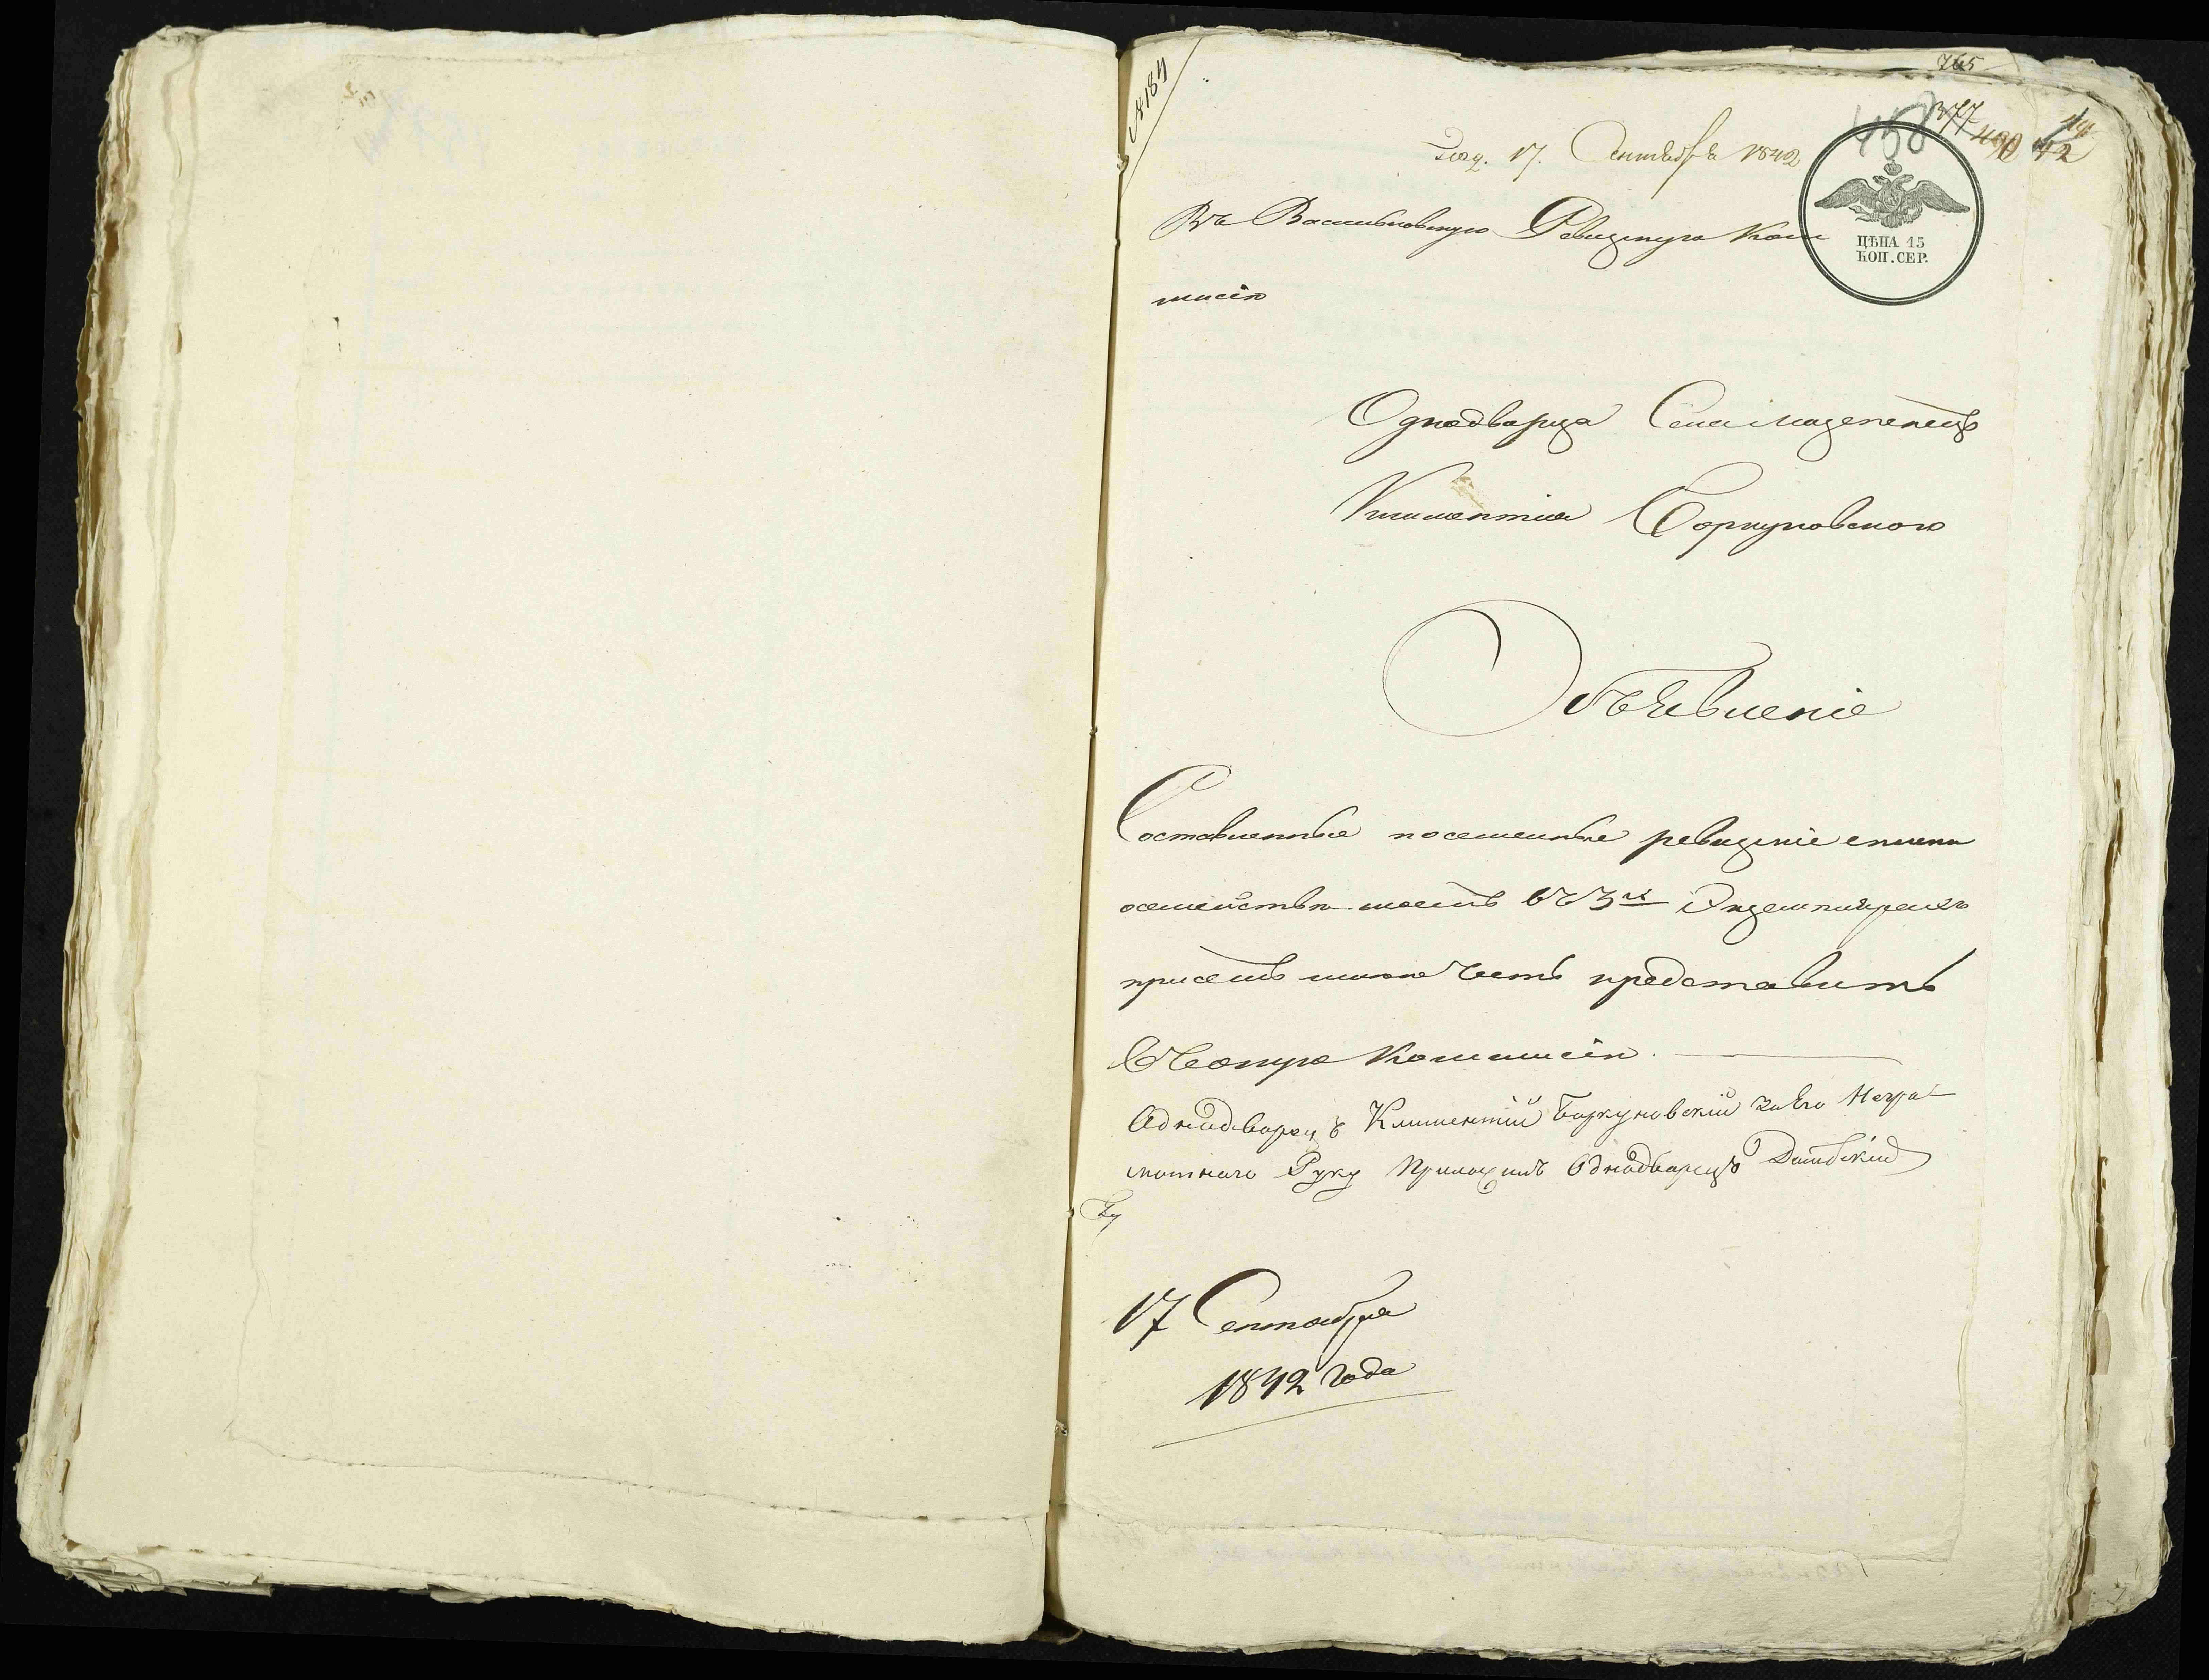 № 184
765
458
377
490
Под. 17. Сентебря 1842
ЦѢНА 15
КОП. СЕР.
Въ Васильковскую Ревизскую Ком
мисію
Однодворца Села Мазепенецъ
Климентия Боркуновского
Объевленіе
Составленные посемейные ревизкіе списки
осемействи моемъ въ 3х Экземплярахъ
присемъ имею честь представить
Въеопую Коммисію.
Однодворецъ Климентій Боркуновскій заего Негра
мотнаго Руку Приложилъ Однодворецъ
17 Сентоября
1842 года